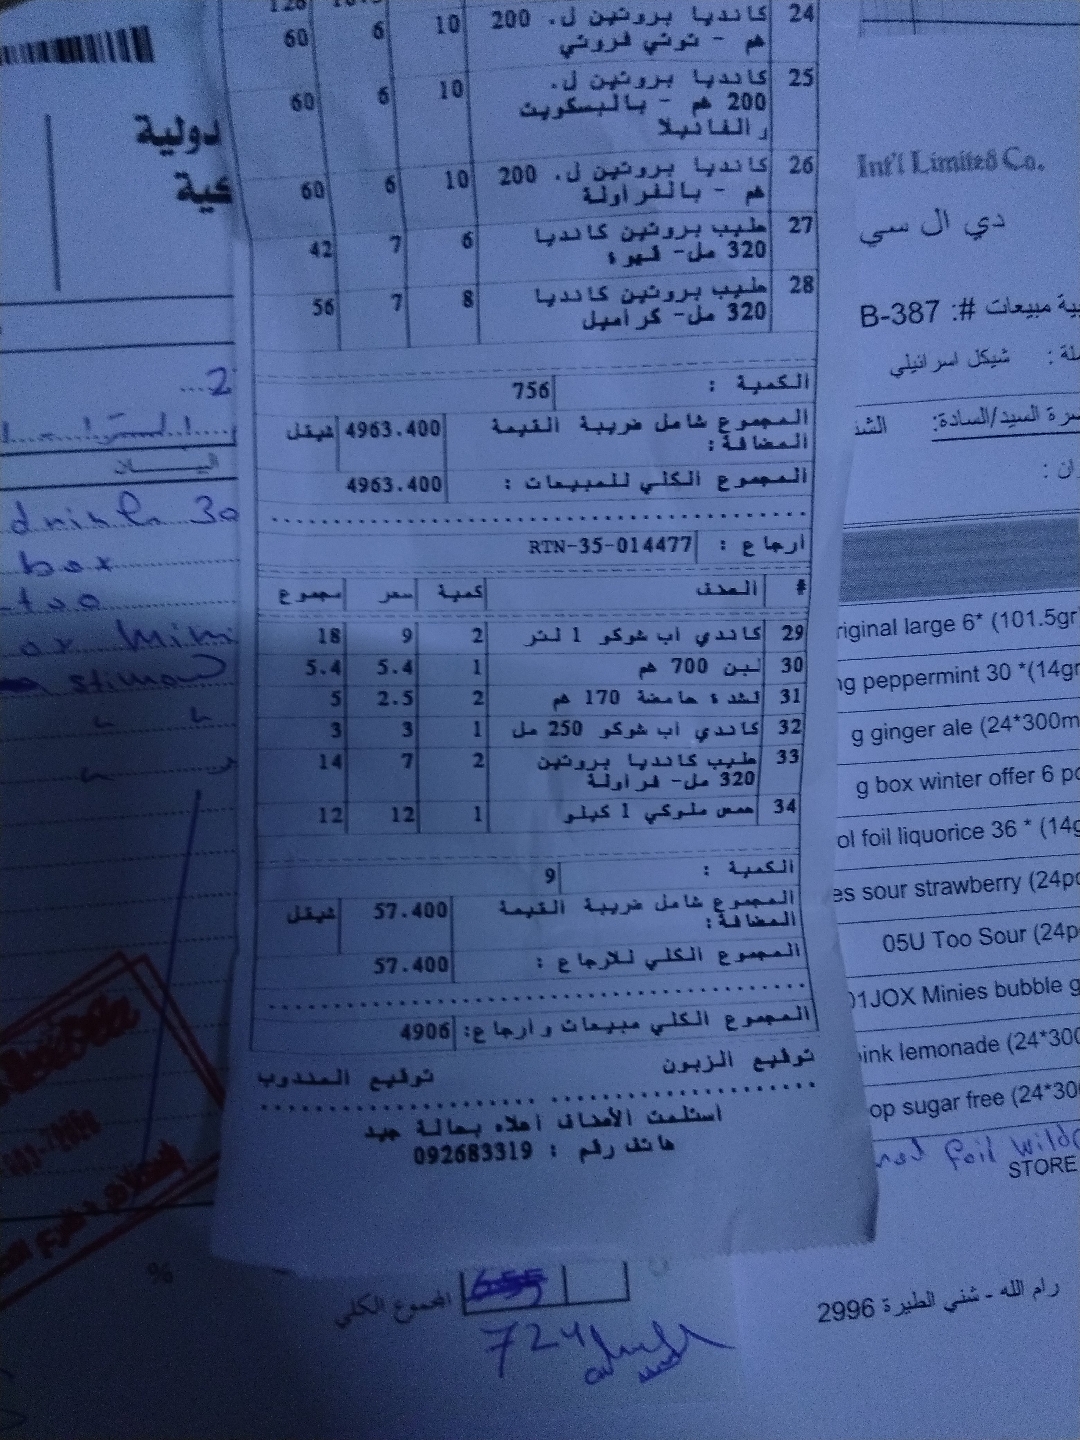 24 كانديا بروتين ل. 200 10 6 60
هم - توتي فروتي
25 كانديا بروتين ل. 10 6 60
200 هم - بالبسكويت
والفانيلا
26 كانديا بروتين ل. 200 10 6 60
هم - بالفراولة
27 حليب بروتين كانديا 6 7 42
320 مل- قهوة
28 حليب بروتين كانديا 8 7 56
320 مل- كراميل
الكمية : 756
المجموع شامل ضريبة القيمة 4963.400 شيقل
المضافة:
المجموع الكلي للمبيعات : 4963.400
أرجاع : RTN-35-014477
# الصنف كمية سعر مجموع
29 كاندي أب شوكو 1 لتر 2 9 18
30 لبن 700 هم 1 5.4 5.4
31 قشدة حامضة 170 هم 2 2.5 5
32 كاندي أب شوكو 250 مل 1 3 3
33 حليب كانديا بروتين 2 7 14
320 مل- فراولة
34 حمص ملوكي 1 كيلو 1 12 12
الكمية : 9
المجموع شامل ضريبة القيمة 57.400 شيقل
المضافة:
المجموع الكلي للارجاع : 57.400
المجموع الكلي مبيعات وأرجاع: 4906
توقيع الزبون توقيع المندوب
أستلمت الأصناف أعلاه بحالة جيد
هاتف رقم : 092683319
دولية
كية
البيان
30
box
too
المجموع الكلي
%
724
Int'l Limited Co.
دي ال سي
ية مبيعات #: B-387
ملة : شيكل اسرائيلي
رة السيد/السادة: الشن
ان :
riginal large 6* (101.5gr
ng peppermint 30 *(14gr
g ginger ale (24*300m
g box winter offer 6 pc
ol foil liquorice 36 * (14g
es sour strawberry (24pc
05U Too Sour (24p
01JOX Minies bubble g
ink lemonade (24*300
op sugar free (24*30
foil wild
STORE
رام الله - شني الطيرة 2996